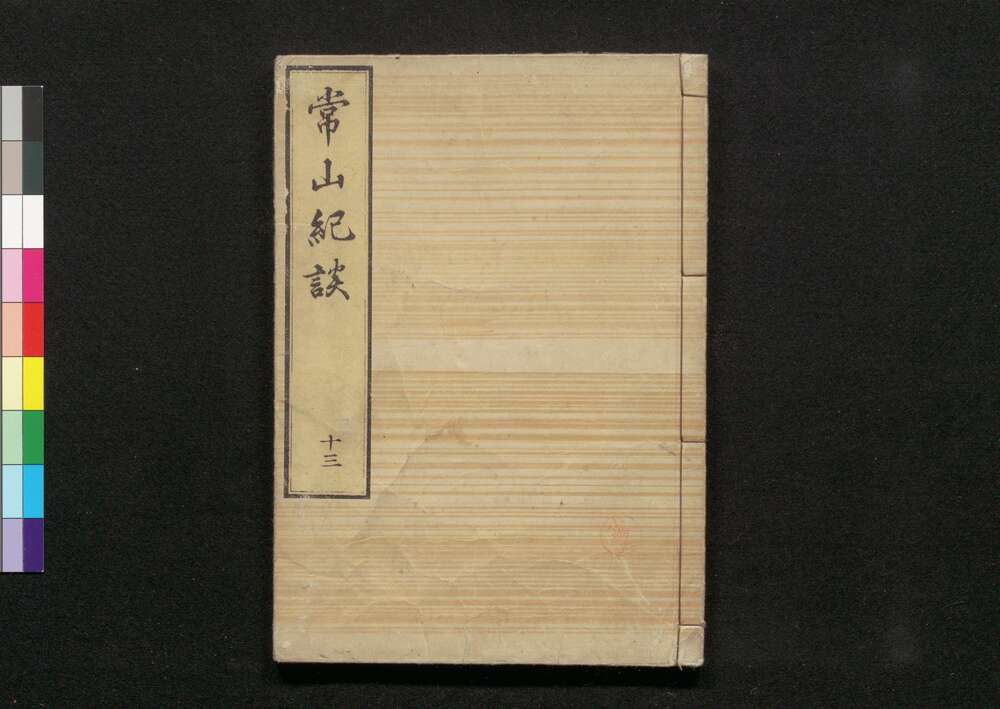 常山紀談
十三